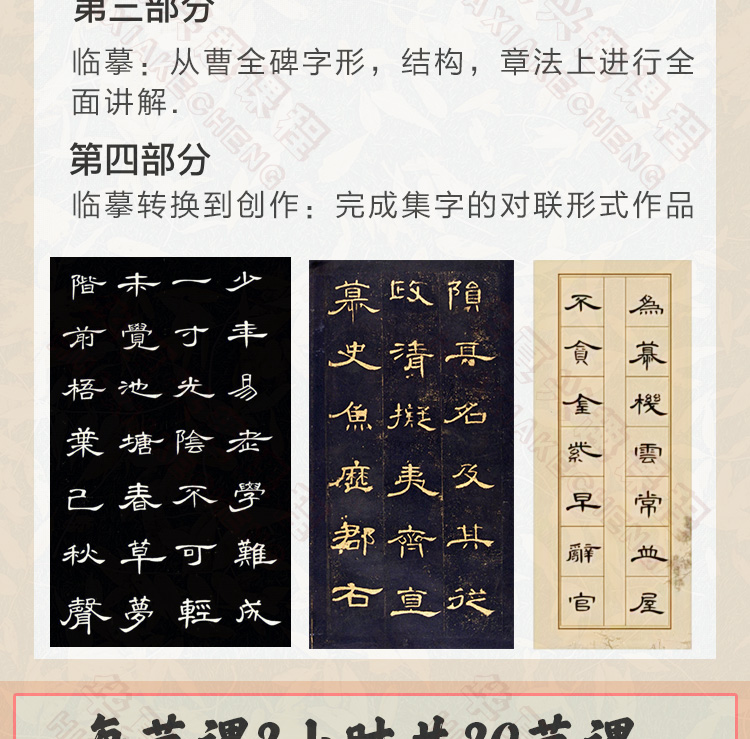 第三部分
临摹：从曹全碑字形，结构，章法上进行全
面讲解.
第四部分
临摹转换到创作：完成集字的对联形式作品
少年易老學難成
一寸光陰不可輕
未覺池塘春草夢
階前梧葉已秋聲
隕其名及其從
政清擬夷齊直
慕史魚歷郡右
為慕機雲常並屋
不貪金紫早辭官
每节课2小时共20节课